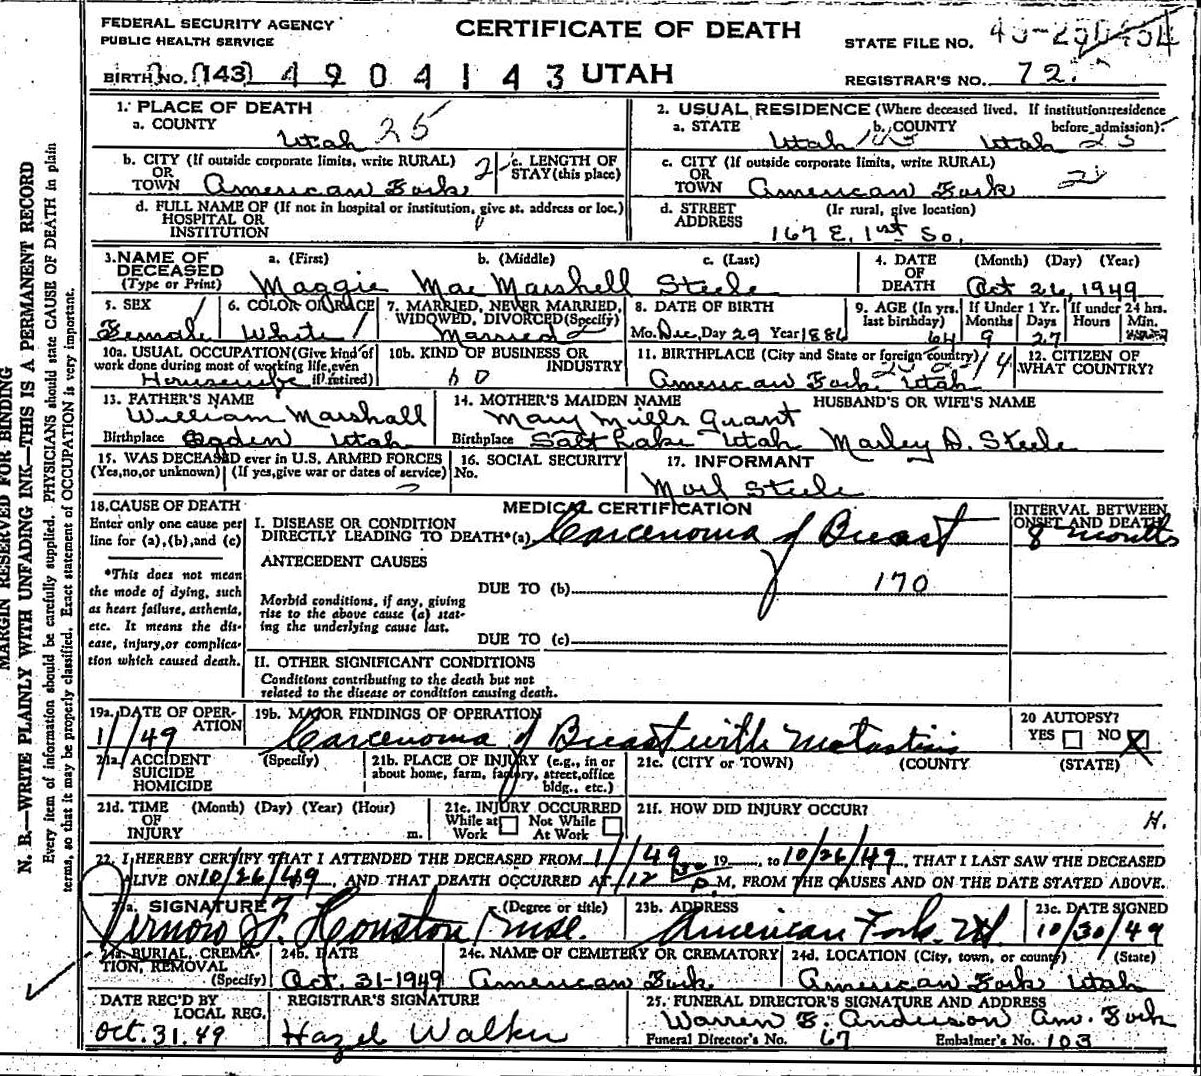 FEDERAL SECURITY AGENCY
PUBLIC HEALTH SERVICE
CERTIFICATE OF DEATH
STATE FILE NO.
BIRTH NO. (143) 4 9 0 4 1 4 3 UTAH
REGISTRAR'S NO. 72
1. PLACE OF DEATH
a. COUNTY
Utah 25
2. USUAL RESIDENCE (Where deceased lived. If institution: residence before admission).
a. STATE Utah b. COUNTY Utah 25
b. CITY (If outside corporate limits, write RURAL)
OR TOWN American Fork 2
c. LENGTH OF STAY (this place)
c. CITY (If outside corporate limits, write RURAL)
OR TOWN American Fork 2
d. FULL NAME OF (If not in hospital or institution, give st. address or loc.)
HOSPITAL OR INSTITUTION
d. STREET ADDRESS (If rural, give location)
167 E. 1st So.
3. NAME OF DECEASED (Type or Print)
a. (First) b. (Middle) c. (Last)
Maggie Mae Marshell Steele
4. DATE OF DEATH (Month) (Day) (Year)
Oct 26, 1949
5. SEX
Female
6. COLOR OR RACE
White
7. MARRIED, NEVER MARRIED, WIDOWED, DIVORCED (Specify)
Married 2
8. DATE OF BIRTH
Mo. Dec, Day 29 Year 1886
9. AGE (In yrs. last birthday) 64
If Under 1 Yr. Months 9 Days 27
If under 24 hrs. Hours Min.
10a. USUAL OCCUPATION (Give kind of work done during most of working life, even if retired)
Housewife
10b. KIND OF BUSINESS OR INDUSTRY
11. BIRTHPLACE (City and State or foreign country)
American Fork Utah
12. CITIZEN OF WHAT COUNTRY?
13. FATHER'S NAME
William Marshall
Birthplace Ogden Utah
14. MOTHER'S MAIDEN NAME
Mary Mills Grant
Birthplace Salt Lake Utah
HUSBAND'S OR WIFE'S NAME
Marley D. Steele
15. WAS DECEASED ever in U.S. ARMED FORCES
(Yes, no, or unknown) (If yes, give war or dates of service)
16. SOCIAL SECURITY No.
17. INFORMANT
Steele
18. CAUSE OF DEATH
Enter only one cause per line for (a), (b), and (c)
*This does not mean the mode of dying, such as heart failure, asthenia, etc. It means the disease, injury, or complication which caused death.
MEDICAL CERTIFICATION
I. DISEASE OR CONDITION DIRECTLY LEADING TO DEATH*(a) Carcenoma of Breast
INTERVAL BETWEEN ONSET AND DEATH
8 months
ANTECEDENT CAUSES
DUE TO (b) 170
Morbid conditions, if any, giving rise to the above cause (a) stating the underlying cause last.
DUE TO (c)
II. OTHER SIGNIFICANT CONDITIONS
Conditions contributing to the death but not related to the disease or condition causing death.
19a. DATE OF OPERATION
1/ /49
19b. MAJOR FINDINGS OF OPERATION
Carcenoma of Breast with Metastisis
20 AUTOPSY?
YES NO X
21a. ACCIDENT SUICIDE HOMICIDE (Specify)
21b. PLACE OF INJURY (e.g., in or about home, farm, factory, street, office bldg., etc.)
21c. (CITY or TOWN) (COUNTY) (STATE)
21d. TIME OF INJURY (Month) (Day) (Year) (Hour) m.
21e. INJURY OCCURRED
While at Work Not While At Work
21f. HOW DID INJURY OCCUR?
H.
22. I HEREBY CERTIFY THAT I ATTENDED THE DECEASED FROM 1/ /49 19___, to 10/26/49, THAT I LAST SAW THE DECEASED
ALIVE ON 10/26/49, AND THAT DEATH OCCURRED AT 12 30 P.M, FROM THE CAUSES AND ON THE DATE STATED ABOVE.
23a. SIGNATURE (Degree or title)
Vernow F. Houston
23b. ADDRESS
American Fork, Ut.
23c. DATE SIGNED
10/30/49
24a. BURIAL, CREMATION, REMOVAL (Specify)
24b. DATE
Oct. 31-1949
24c. NAME OF CEMETERY OR CREMATORY
American Fork
24d. LOCATION (City, town, or county) (State)
American Fork Utah
DATE REC'D BY LOCAL REG.
Oct. 31. 49
REGISTRAR'S SIGNATURE
Hazel Walker
25. FUNERAL DIRECTOR'S SIGNATURE AND ADDRESS
Warren B. Anderson Am. Fork
Funeral Director's No. 67 Embalmer's No. 103
MARGIN RESERVED FOR BINDING
N. B.—WRITE PLAINLY WITH UNFADING INK—THIS IS A PERMANENT RECORD
Every item of information should be carefully supplied. PHYSICIANS should state CAUSE OF DEATH in plain
terms, so that it may be properly classified. Exact statement of OCCUPATION is very important.